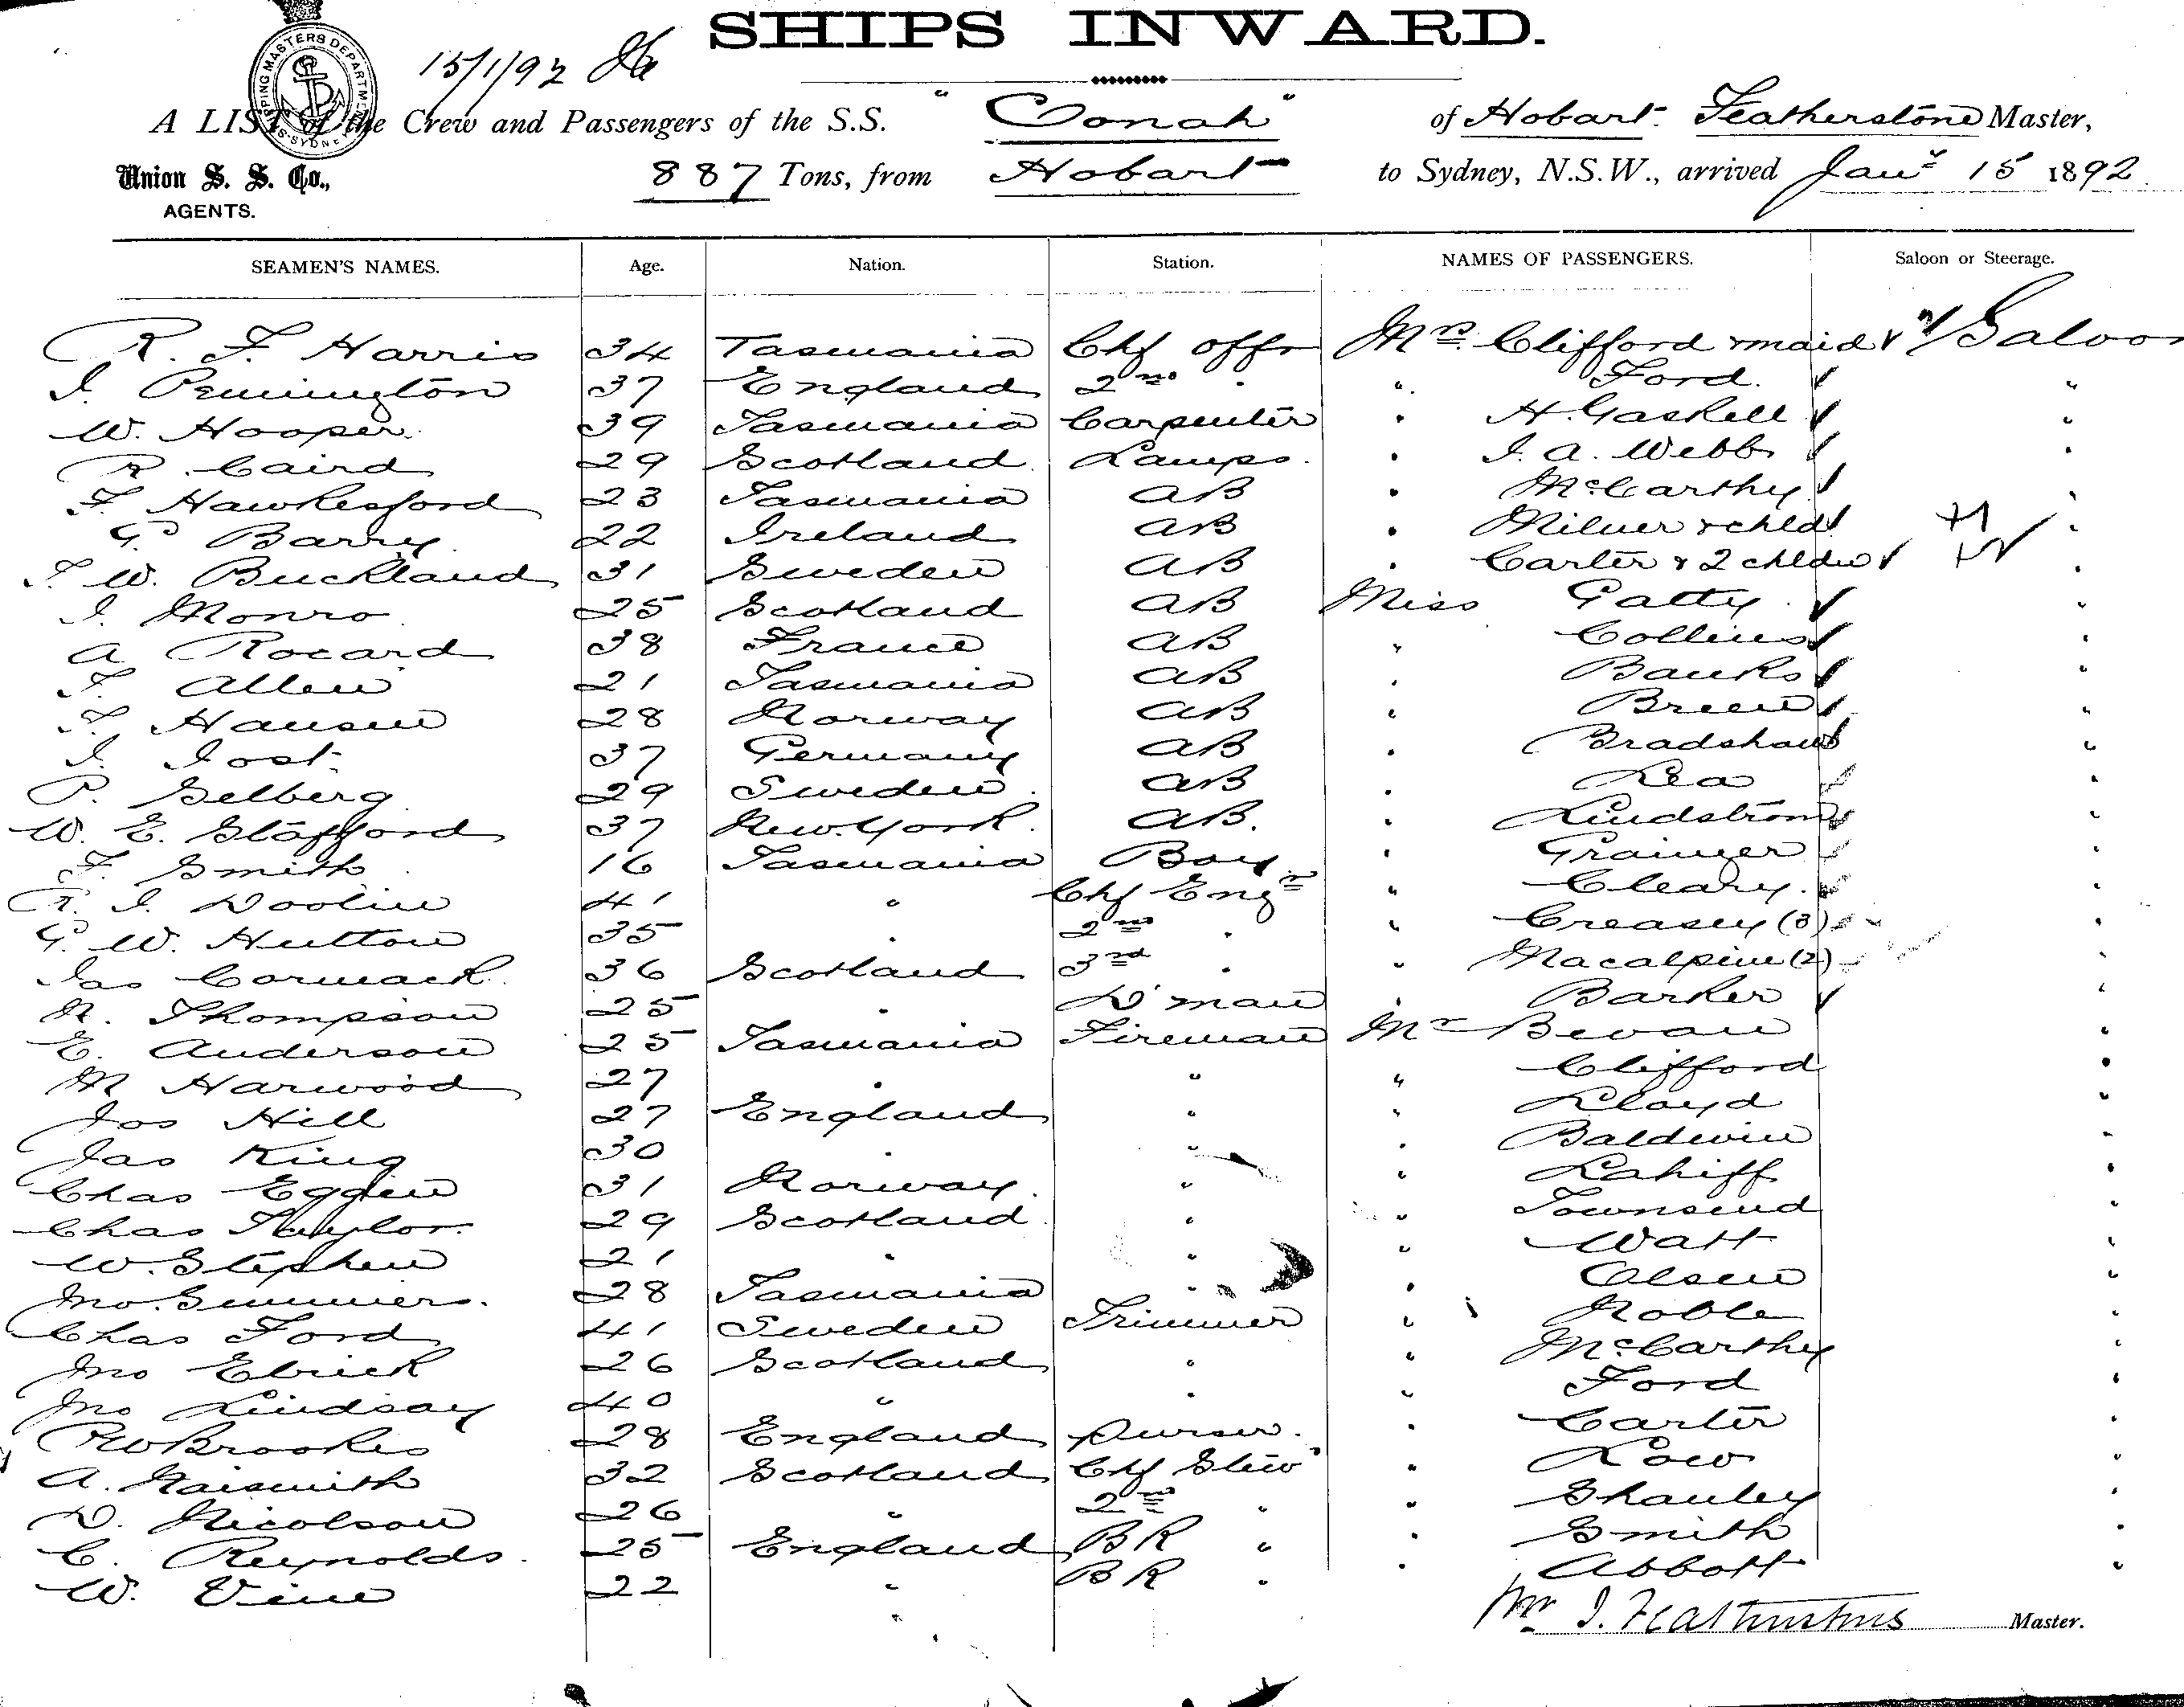 SHIPS INWARD.
SHIPPING MASTERS DEPARTMENT SYDNEY
15/1/92
A LIST of the Crew and Passengers of the S.S. "Oonah" of Hobart. Featherstone Master,
Union S. S. Co., 887 Tons, from Hobart to Sydney, N.S.W., arrived Jany 15 1892
AGENTS.
SEAMEN'S NAMES. Age. Nation. Station. NAMES OF PASSENGERS. Saloon or Steerage.
R. F. Harris 34 Tasmania Chf offr Mrs. Clifford & maid Saloon
J. Pennington 37 England 2nd " " Ford. "
W. Hooper 39 Tasmania Carpenter " H. Gaskell "
R. Caird 29 Scotland Lamps. " J. A. Webb "
F. Hawkesford 23 Tasmania AB " McCarthy "
G. Barry 22 Ireland AB " Milner & chld "
T. W. Buckland 31 Sweden AB " Carter & 2 chldn "
J. Monro 25 Scotland AB Miss Gatty "
A Rocard 38 France AB " Collins "
T. Allen 21 Tasmania AB " Banks "
T. Hansen 28 Norway AB " Breen "
J. Jost. 37 Germany AB " Bradshaw "
P. Selberg 29 Sweden AB " Lea "
W. E. Stafford 37 New York. AB. " Lindstrom "
F. Smith 16 Tasmania Boy " Grainger "
R. J. Doolin 41 " Chf Engr " Cleary. "
G. W. Hutton 35 " 2nd " " Creasey (3) "
Jas Cormack. 36 Scotland 3rd " " Macalpine (2) "
N. Thompson 25 " D'man " Barker "
E. Anderson 25 Tasmania Fireman Mr Bevan "
M Harwood 27 " " " Clifford "
Jos Hill 27 England " " Lloyd "
Jas King 30 " " " Baldwin "
Chas Eggen 31 Norway. " " Lahiff "
Chas Taylor. 29 Scotland " " Townsend "
W. Stephen 21 " " " Watt "
Jno. Summers. 28 Tasmania " " Olsen "
Chas Ford 41 Sweden Trimmer " Noble "
Jno Ebrick 26 Scotland " " McCarthy "
Jno Lindsay 40 " " " Ford "
RW Brookes 28 England Purser. " Carter "
A. Naismith 32 Scotland Chf Stew " Low "
D. Nicolson 26 " 2nd " " Shanley "
C. Reynolds. 25 England BR " " Smith "
W. Vine 22 " BR " " Abbott "
Wm J. Featherstone Master.